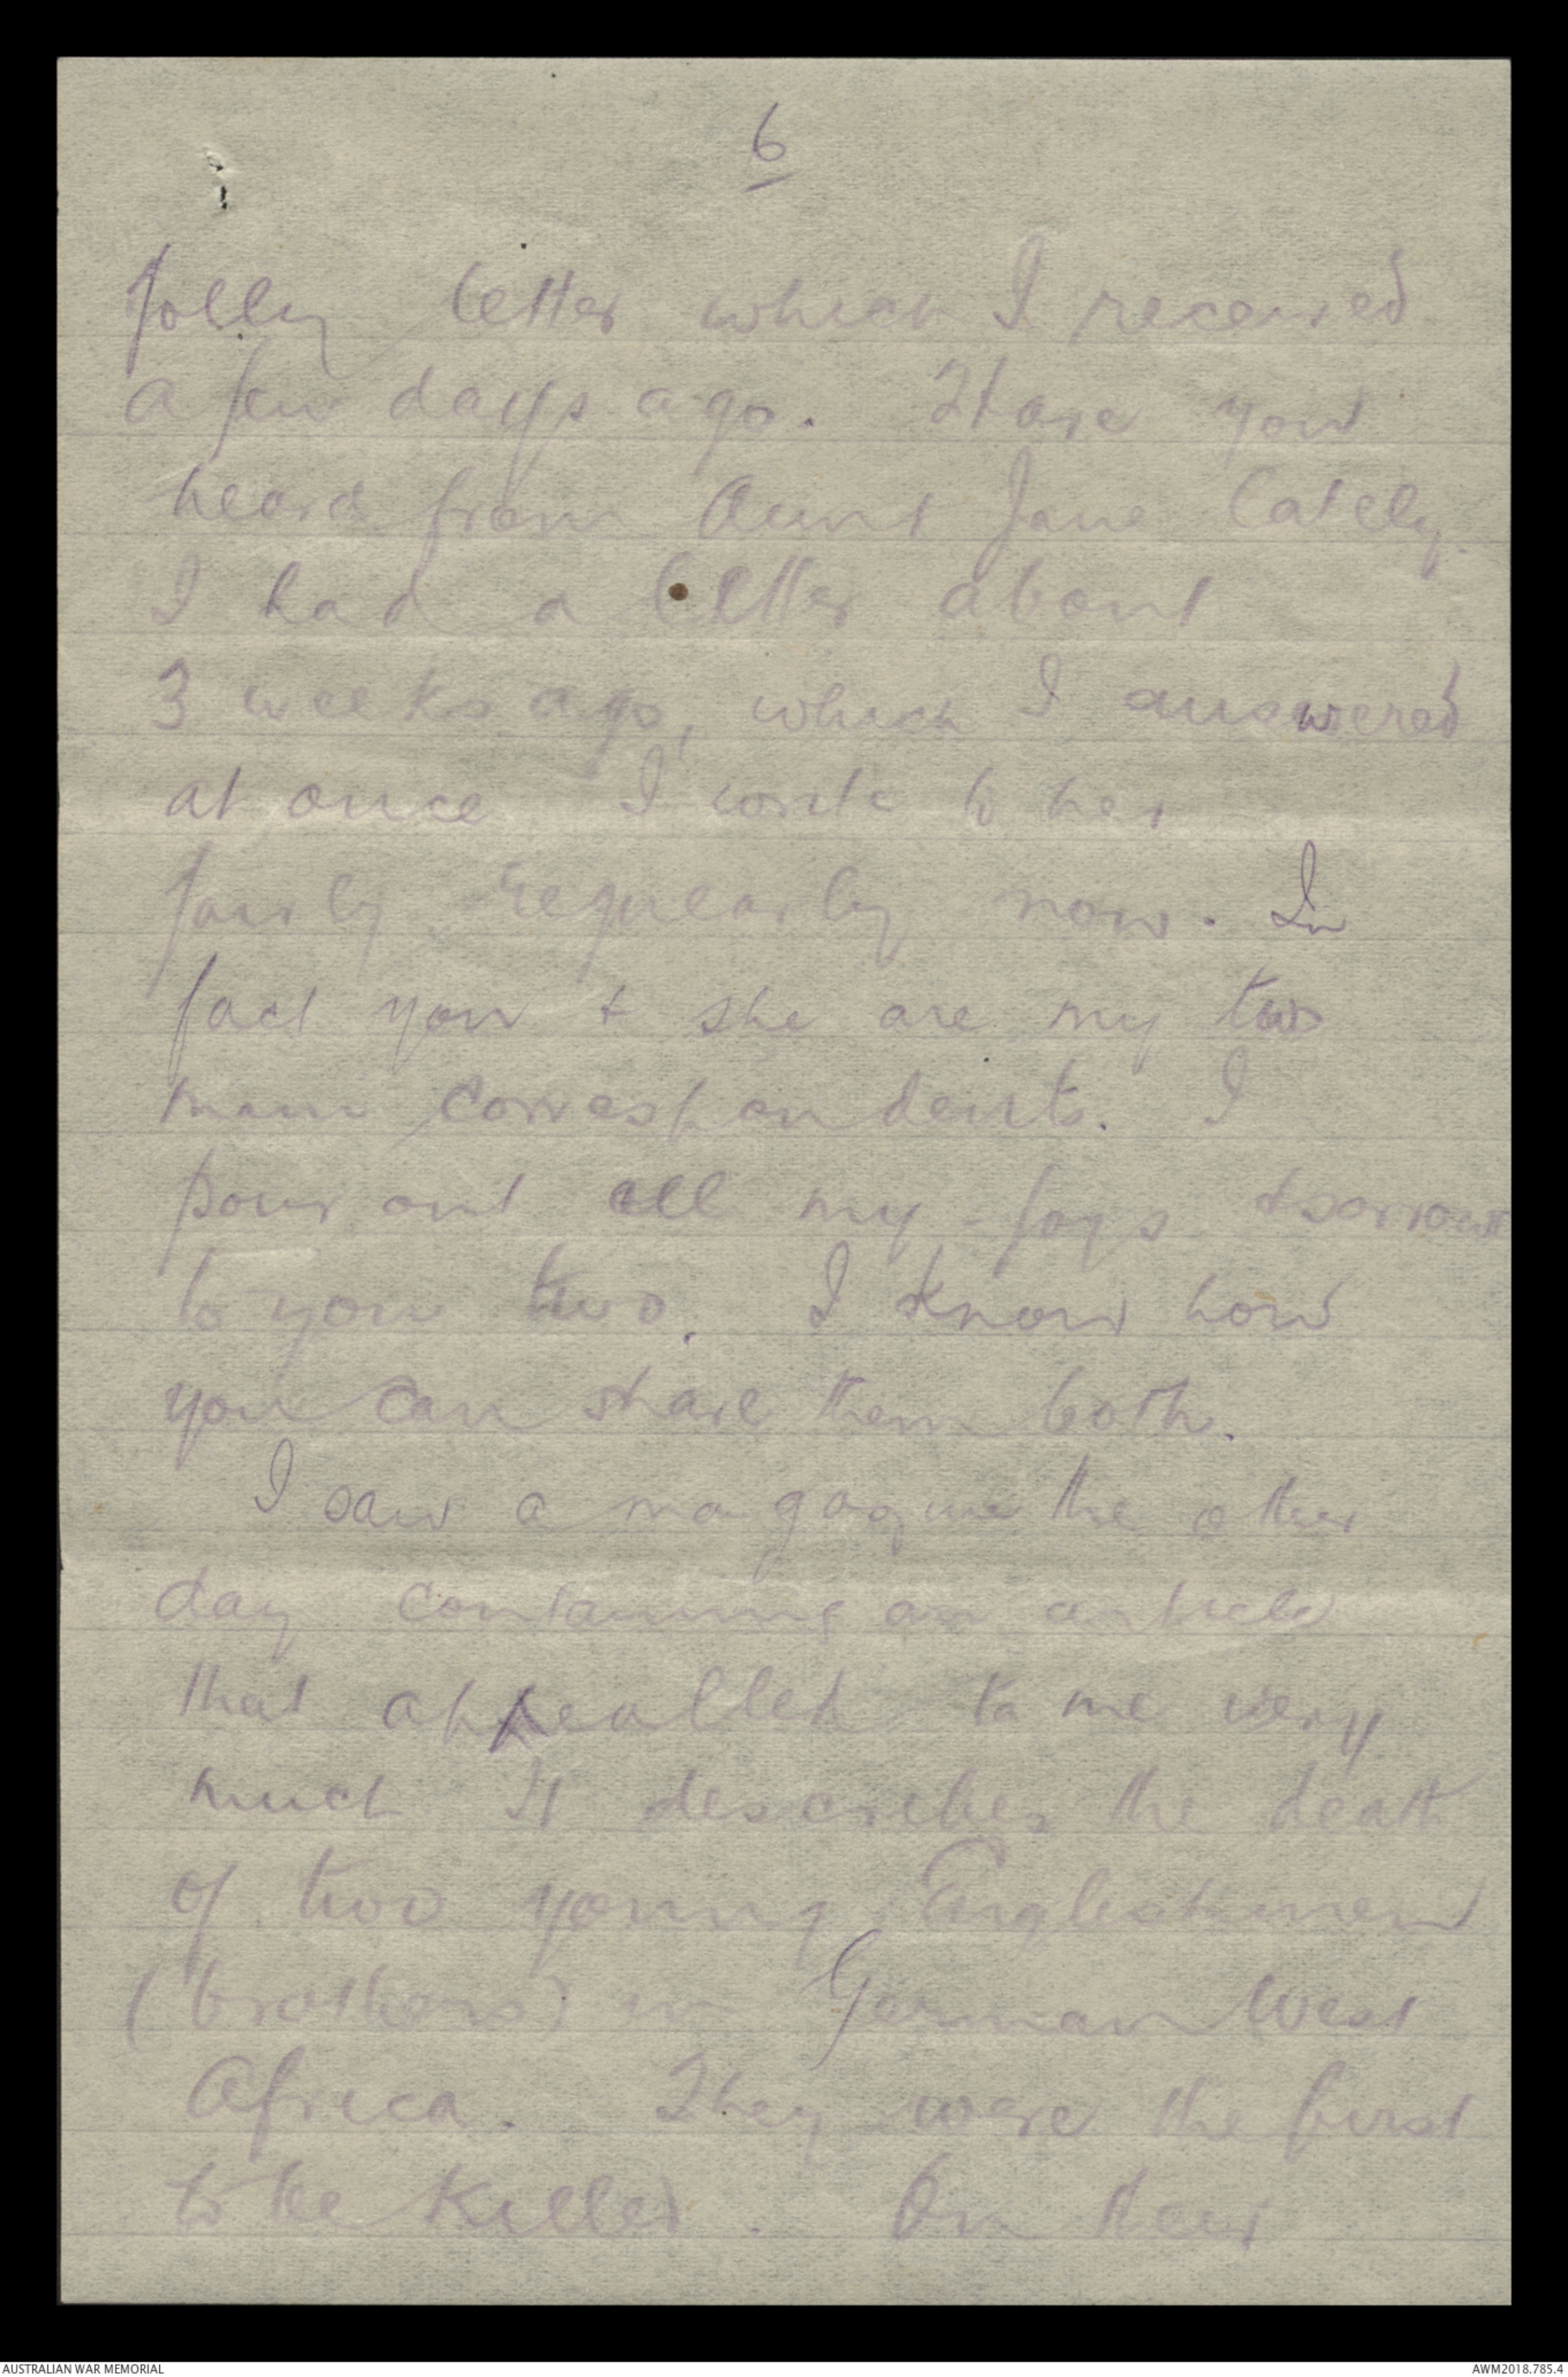 6
jolly letter which I received
a few days ago. Have you
heard from Aunt Jane lately.
I had a letter about
3 weeks ago, which I answered
at once I write to her
fairly regularly now. In
fact you & she are my two
main correspondents. I
pour out all my joys & sorrows
to you two. I know how
you can share them both.
I saw a magazine the other
day containing an article
that appealled to me very
much It describes the death
of two young Englishmen
(brothers) in German West
Africa. They were the first
to be killed. On their
AUSTRALIAN WAR MEMORIAL
AWM2018.785.4